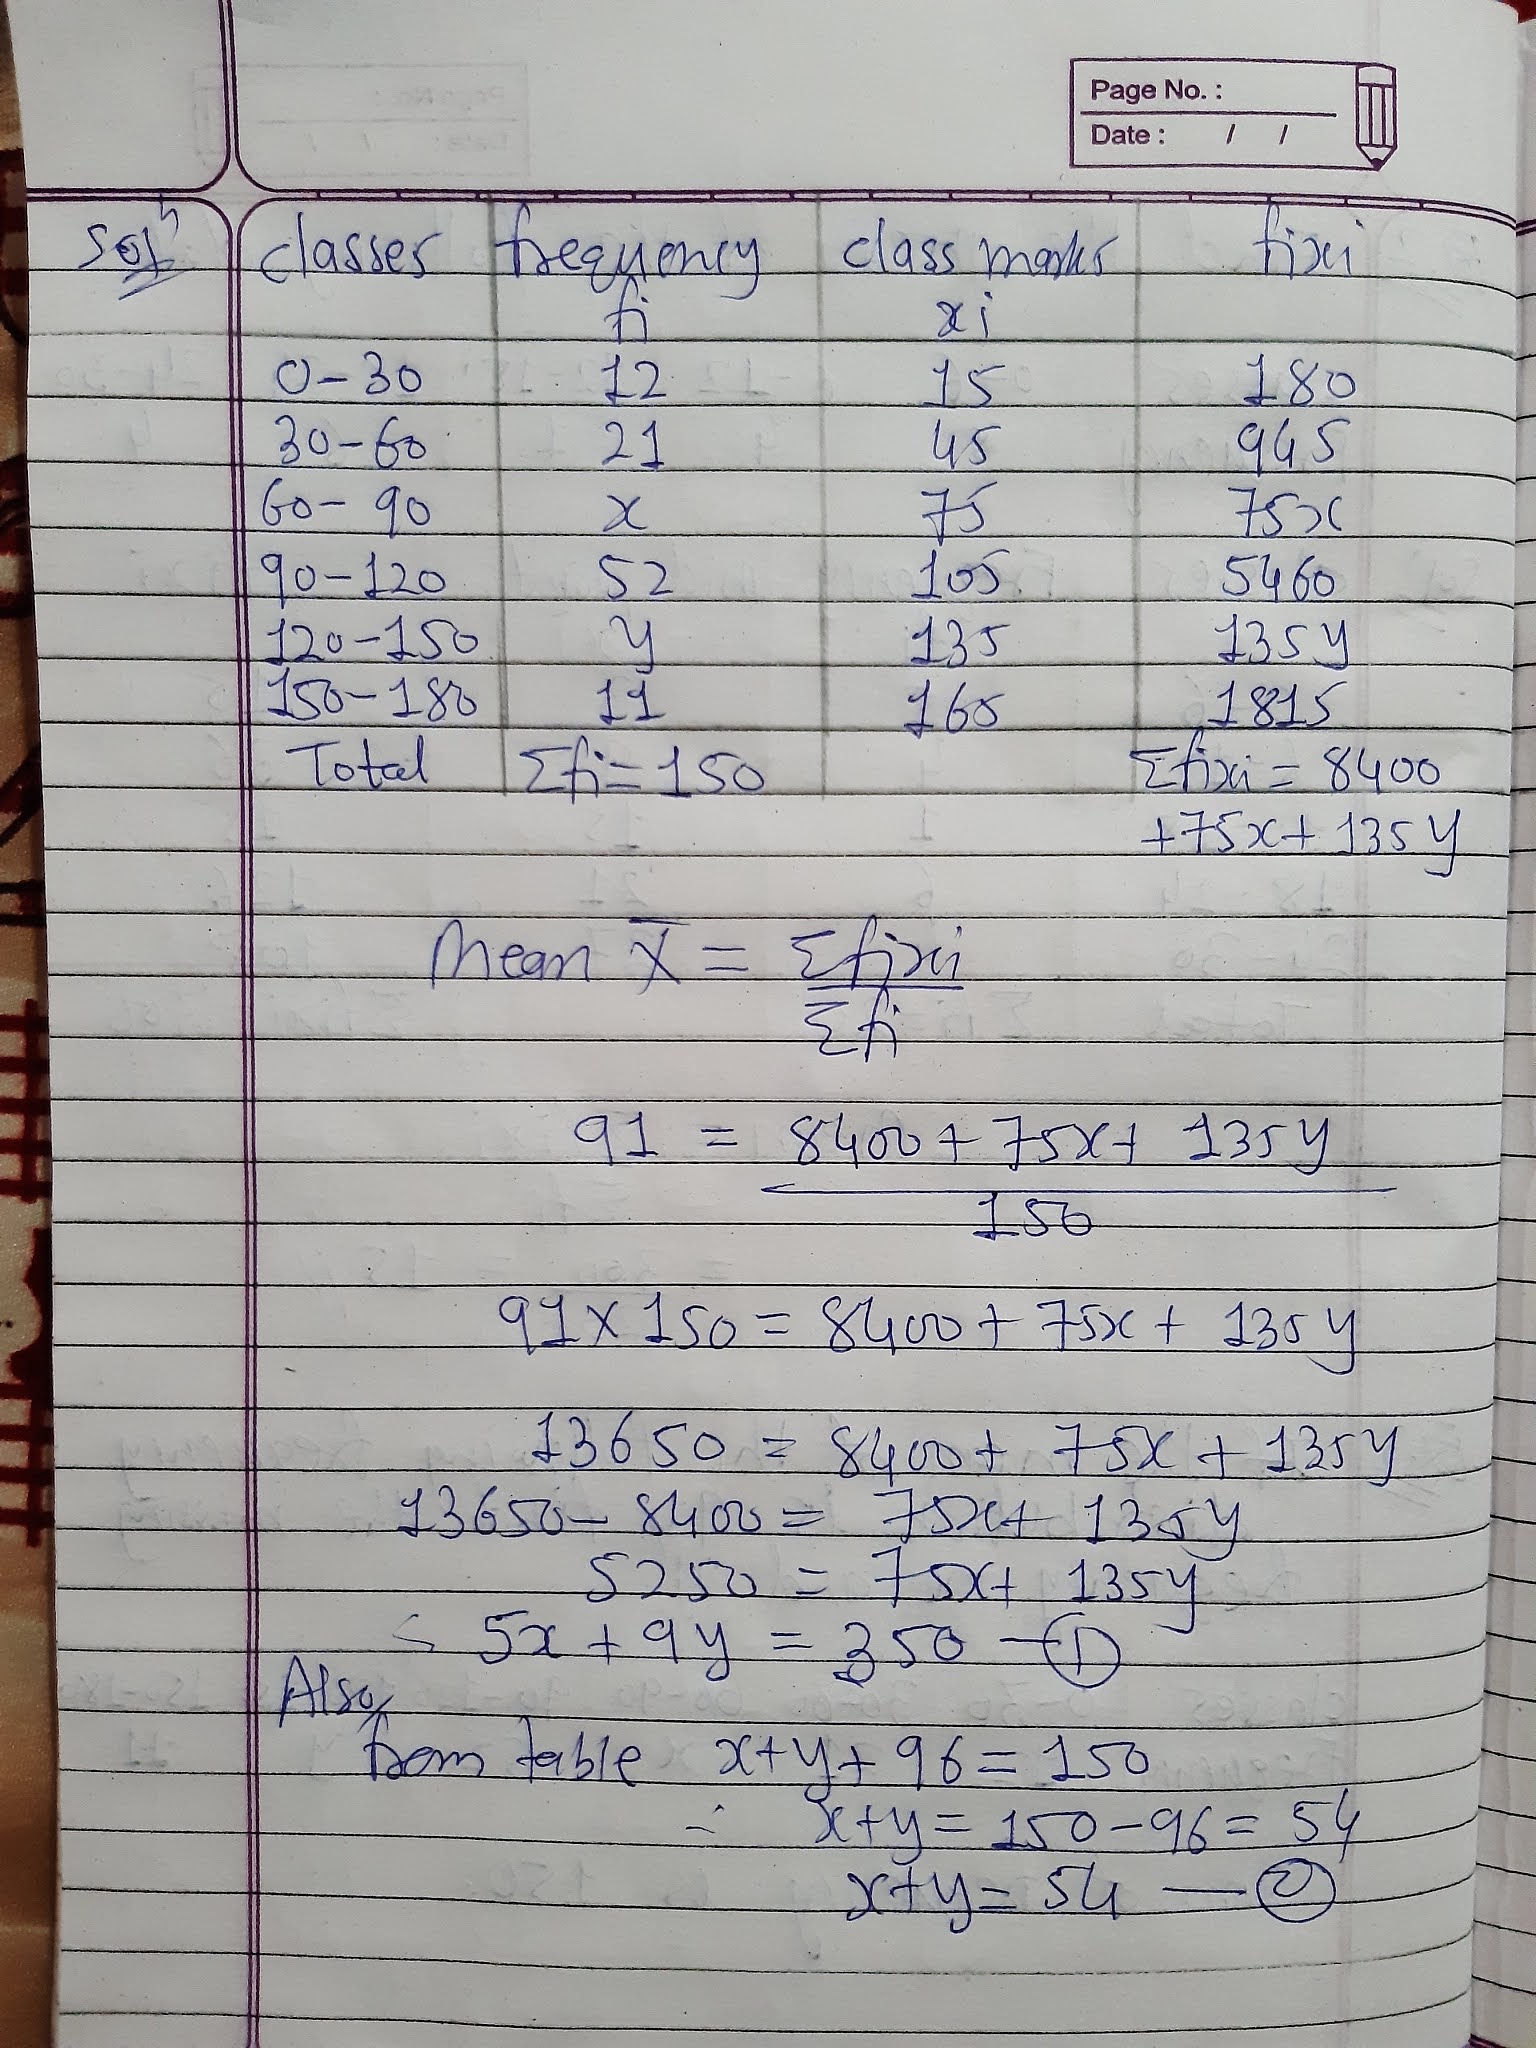 Page No. :
Date : / /
Solⁿ classes frequency class marks fixi
fi xi
0-30 12 15 180
30-60 21 45 945
60-90 x 75 75x
90-120 52 105 5460
120-150 y 135 135y
150-180 11 165 1815
Total Σfi=150 Σfixi = 8400
+75x+135y
Mean X̅ = Σfixi
Σfi
91 = 8400+75x+ 135y
150
91×150=8400+75x+ 135y
13650 = 8400+ 75x+135y
13650- 8400= 75x+ 135y
5250 = 75x+ 135y
∴ 5x+9y = 350 —①
Also,
from table x+y+96=150
∴ x+y=150-96= 54
x+y= 54 —②